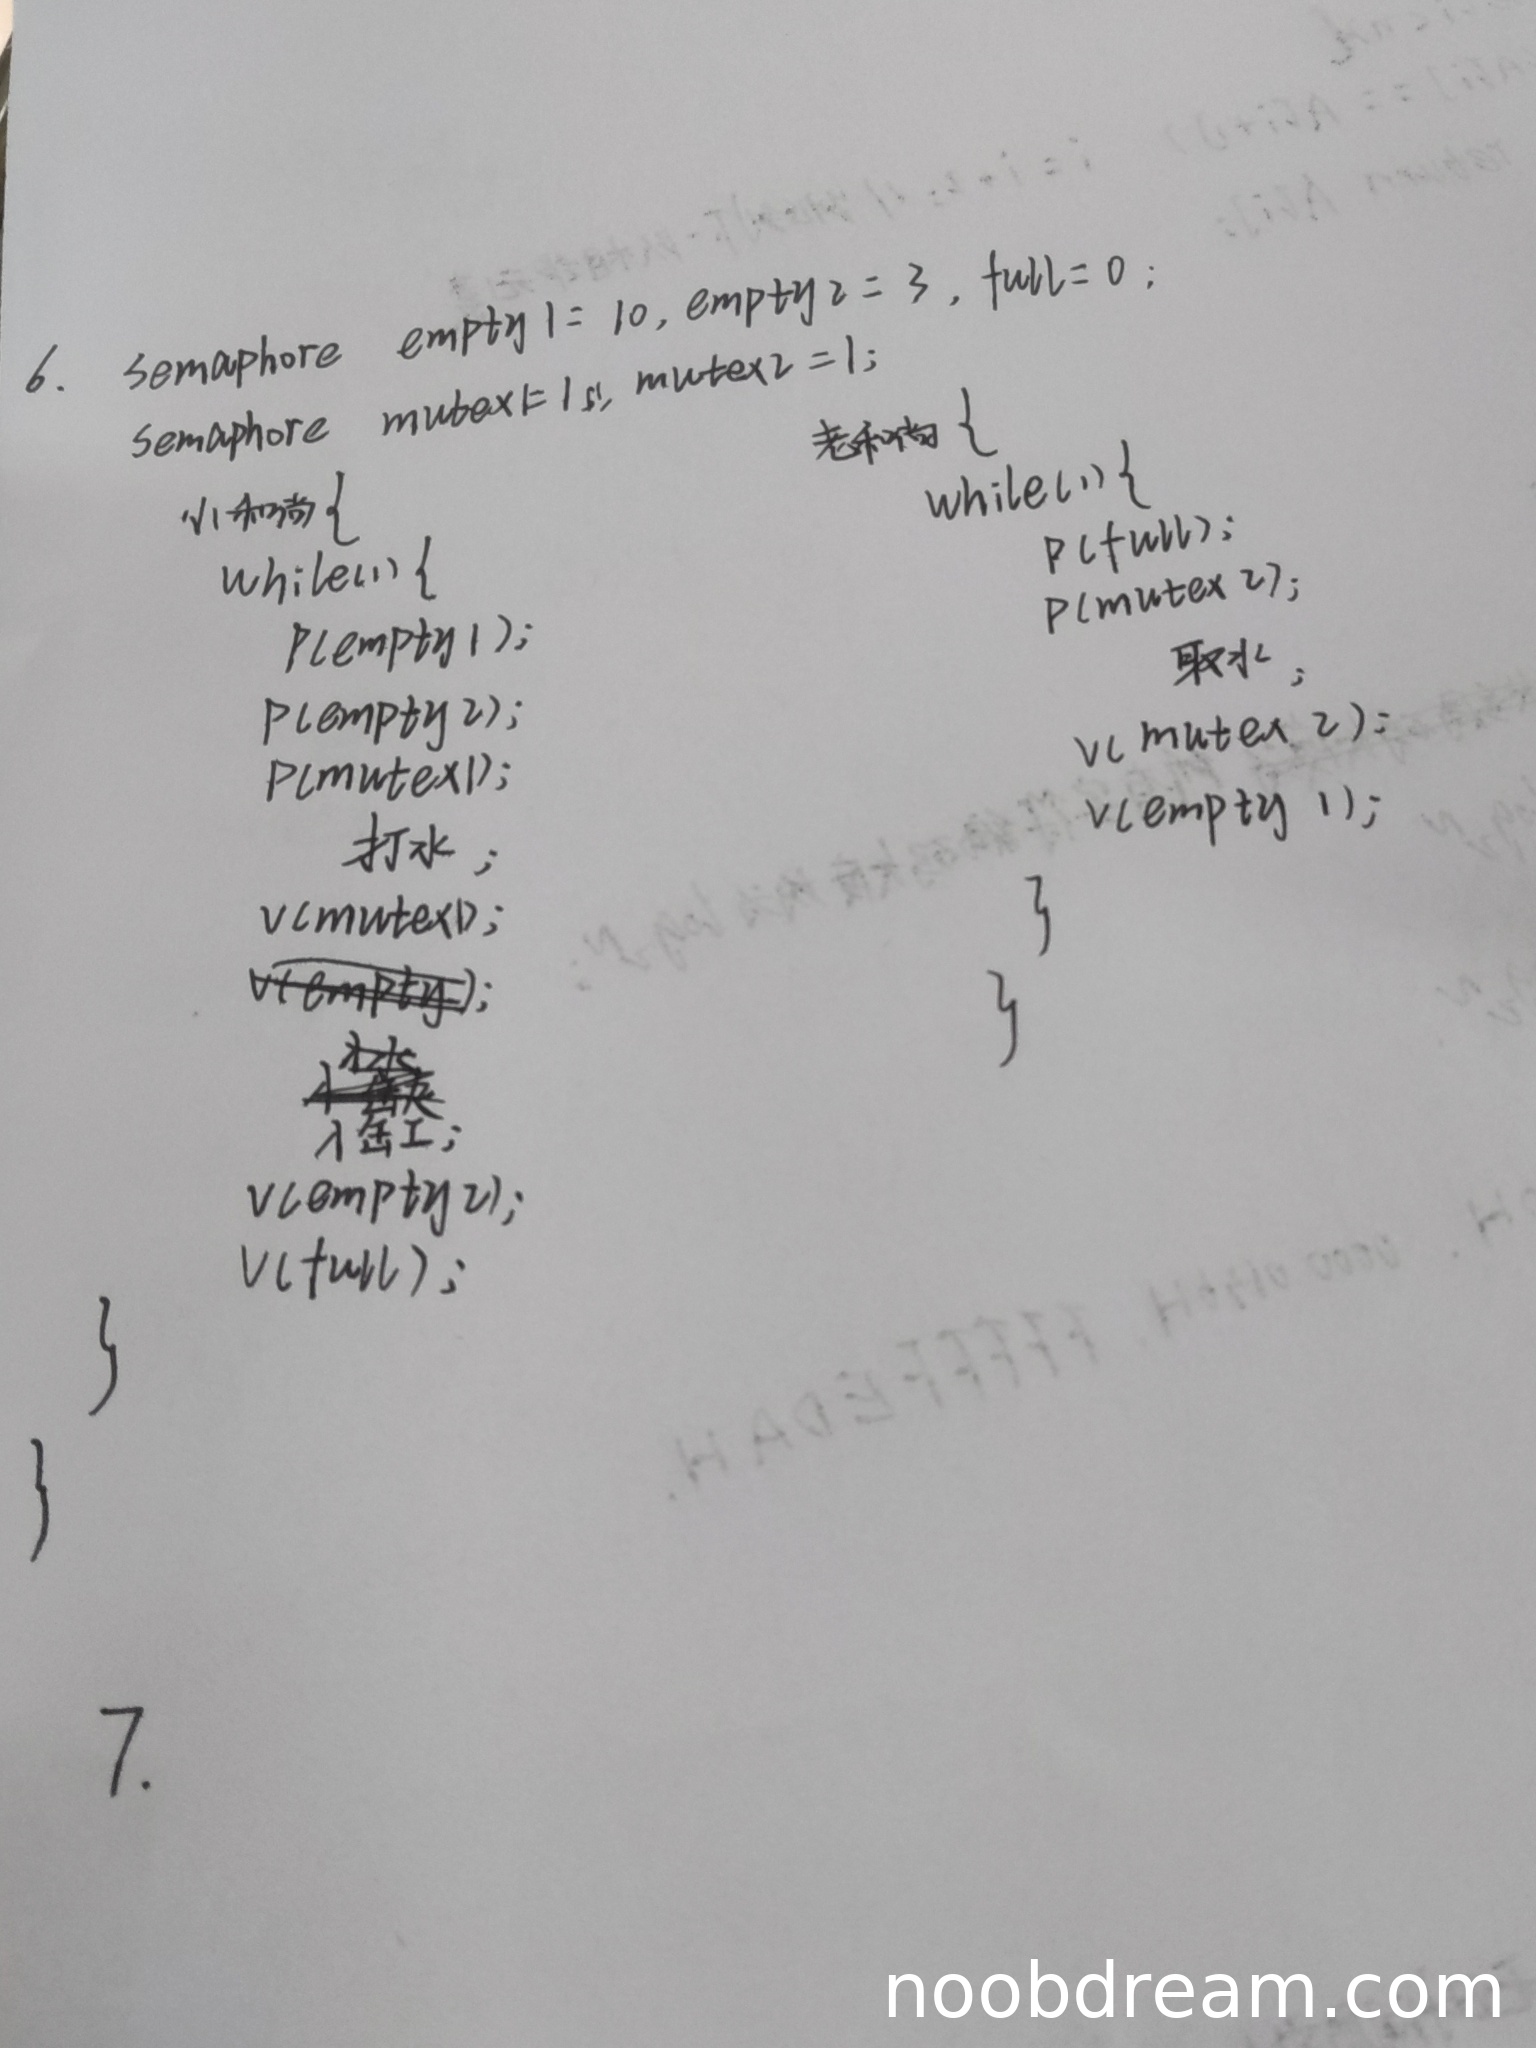 6. semaphore empty1 = 10, empty2 = 3, full = 0;
semaphore mutex1 = 1, mutex2 = 1;
小和尚{
while(1){
P(empty1);
P(empty2);
P(mutex1);
打水;
V(mutex1);
V(empty);
入缸;
V(empty2);
V(full);
}
}
老和尚{
while(1){
P(full);
P(mutex2);
取水;
V(mutex2);
V(empty1);
}
}
7.
noobdream.com